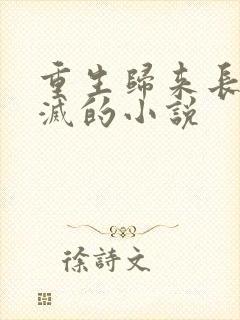 重生歸來長
滅的小說
徐詩文